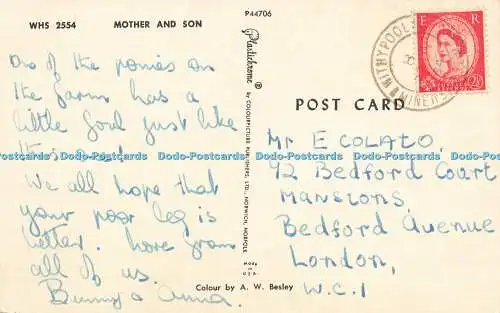 WHS 2554 MOTHER AND SON
P44706
One of the ponies on
the farm has a
little foal just like
this one.
We all hope that
your poor leg is
better. Love from
all of us.
Bunny & Anna.
Plastichrome ®
by COLOURPICTURE PUBLISHERS, LTD., NORWICH, NORFOLK
MADE IN U.S.A.
Colour by A. W. Besley
WITHYPOOL
MINEHEAD
E R
2½D
POST CARD
Mr E COLATO,
92 Bedford Court
Mansions,
Bedford Avenue
London,
W.C.1
Dodo-Postcards Dodo-Postcards Dodo-Postcards Dodo-Postcards Dodo-Postcards